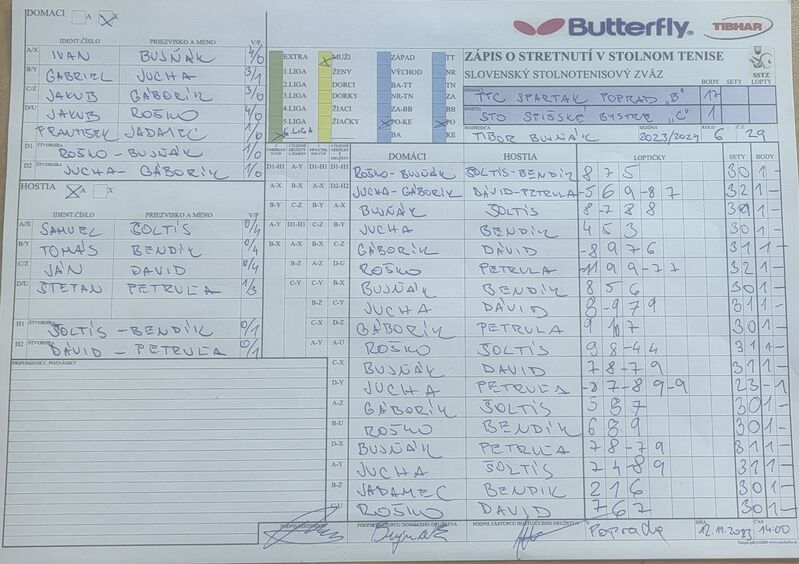 DOMÁCI A X
Butterfly
TIBHAR
IDENT.ČÍSLO PRIEZVISKO A MENO V/P
A/X IVAN BUJŇÁK 4/0
B/Y GABRIEL JUCHA 3/1
C/Z JAKUB GÁBORÍK 3/0
D/U JAKUB ROŠKO 4/0
FRANTIŠEK JADAMEC 1/0
D1 ŠTVORHRA ROŠKO - BUJŇÁK 1/0
D2 JUCHA - GÁBORÍK 1/0
EXTRA
1.LIGA
2.LIGA
3.LIGA
4.LIGA
5.LIGA
MUŽI
ŽENY
DORCI
DORKY
ŽIACI
ŽIAČKY
ZÁPAD
VÝCHOD
BA-TT
NR-TN
ZA-BB
PO-KE
BA
TT
NR
TN
ZA
BB
PO
KE
ZÁPIS O STRETNUTÍ V STOLNOM TENISE
SLOVENSKÝ STOLNOTENISOVÝ ZVÄZ
BODY SETY LOPTY
SSTZ
DOMÁCI TTC SPARTAK POPRAD „B" 17
HOSTIA STO SPIŠSKÉ BYSTRÉ „C" 1
ROZHODCA TIBOR BUJŇÁK SEZÓNA 2023/2024 KOLO 6 Č. 29
HOSTIA A X
IDENT.ČÍSLO PRIEZVISKO A MENO V/P
A/X SAMUEL ŠOLTÍS 0/4
B/Y TOMÁŠ BENDÍK 0/4
C/Z JÁN DAVID 0/4
D/U ŠTEFAN PETRUĽA 1/3
H1 ŠTVORHRA ŠOLTÍS - BENDÍK 0/1
H2 DÁVID - PETRUĽA 0/1
PRIPOMIENKY, POZNÁMKY
DOMÁCI HOSTIA LOPTIČKY SETY BODY
D1-H1 ROŠKO - BUJŇÁK ŠOLTÍS - BENDÍK 8 7 5 3 0 1 -
D2-H2 JUCHA - GÁBORÍK DÁVID - PETRUĽA -5 6 9 -8 7 3 2 1 -
A-X BUJŇÁK ŠOLTÍS 8 -7 8 8 3 1 1 -
B-Y JUCHA BENDÍK 4 5 3 3 0 1 -
C-Z GÁBORÍK DÁVID -8 9 7 6 3 1 1 -
D-U ROŠKO PETRUĽA -11 9 9 -7 7 3 2 1 -
A-Y BUJŇÁK BENDÍK 8 5 6 3 0 1 -
JUCHA DÁVID 8 -9 7 9 3 1 1 -
D-Z GÁBORÍK PETRUĽA 3 0 1 -
ROŠKO ŠOLTÍS 9 8 -4 4 3 1 1 -
C-X BUJŇÁK DAVID 7 8 -7 9 3 1 1 -
D-Y JUCHA PETRUĽA -8 7 -8 9 -9 2 3 - 1
A-Z GÁBORÍK ŠOLTÍS 5 8 7 3 0 1 -
B-U ROŠKO BENDÍK 6 8 9 3 0 1 -
D-X BUJŇÁK PETRUĽA 7 8 -7 9 3 1 1 -
A-Y JUCHA ŠOLTÍS 7 4 -8 9 3 1 1 -
B-Z JADAMEC BENDÍK 2 1 6 3 0 1 -
C-U ROŠKO DÁVID 7 6 7 3 0 1 -
PODPIS ROZHODCU PODPIS ZÁSTUPCU DOMÁCEHO DRUŽSTVA PODPIS ZÁSTUPCU HOSŤUJÚCEHO DRUŽSTVA
DŇA 12.11.2023 ČAS 14:00